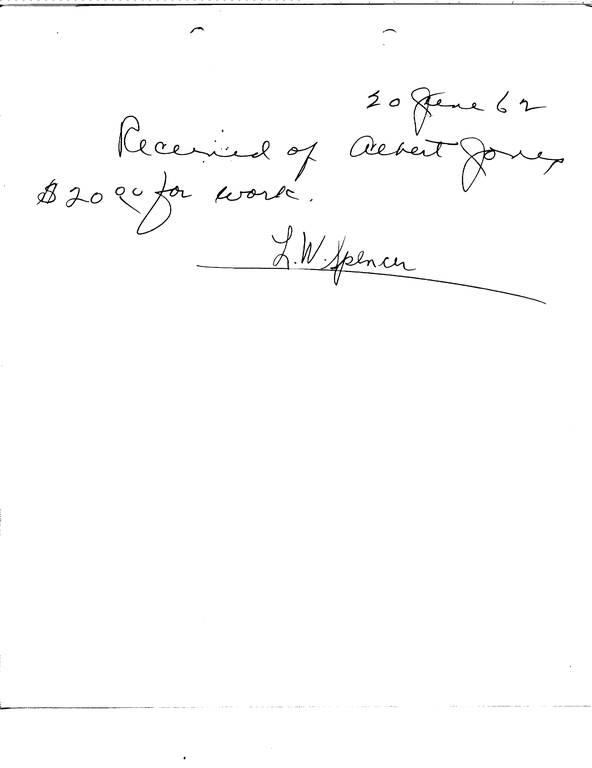 20 June 62
Received of Albert Jones
$20 00 for work.
L.W. Spencer